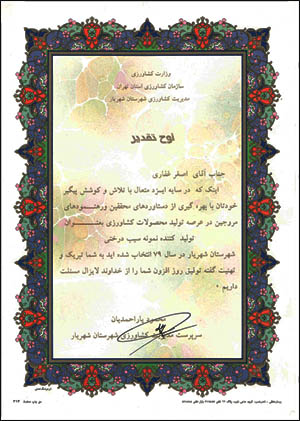 وزارت کشاورزی
سازمان کشاورزی استان تهران
مدیریت کشاورزی شهرستان شهریار
لوح تقدیر
جناب آقای اصغر غفاری
اینک که در سایه ایزد متعال با تلاش و کوشش پیگیر
خودتان با بهره گیری از دستاوردهای محققین ورهنمودهای
مروجین در عرصه تولید محصولات کشاورزی بعنوان
تولید کننده نمونه سیب درختی
شهرستان شهریار در سال ۷۹ انتخاب شده اید به شما تبریک و
تهنیت گفته توفیق روز افزون شما را از خداوند لایزال مسئلت
داریم ۰
محمود یاراحمدیان
سرپرست مدیریت کشاورزی شهرستان شهریار